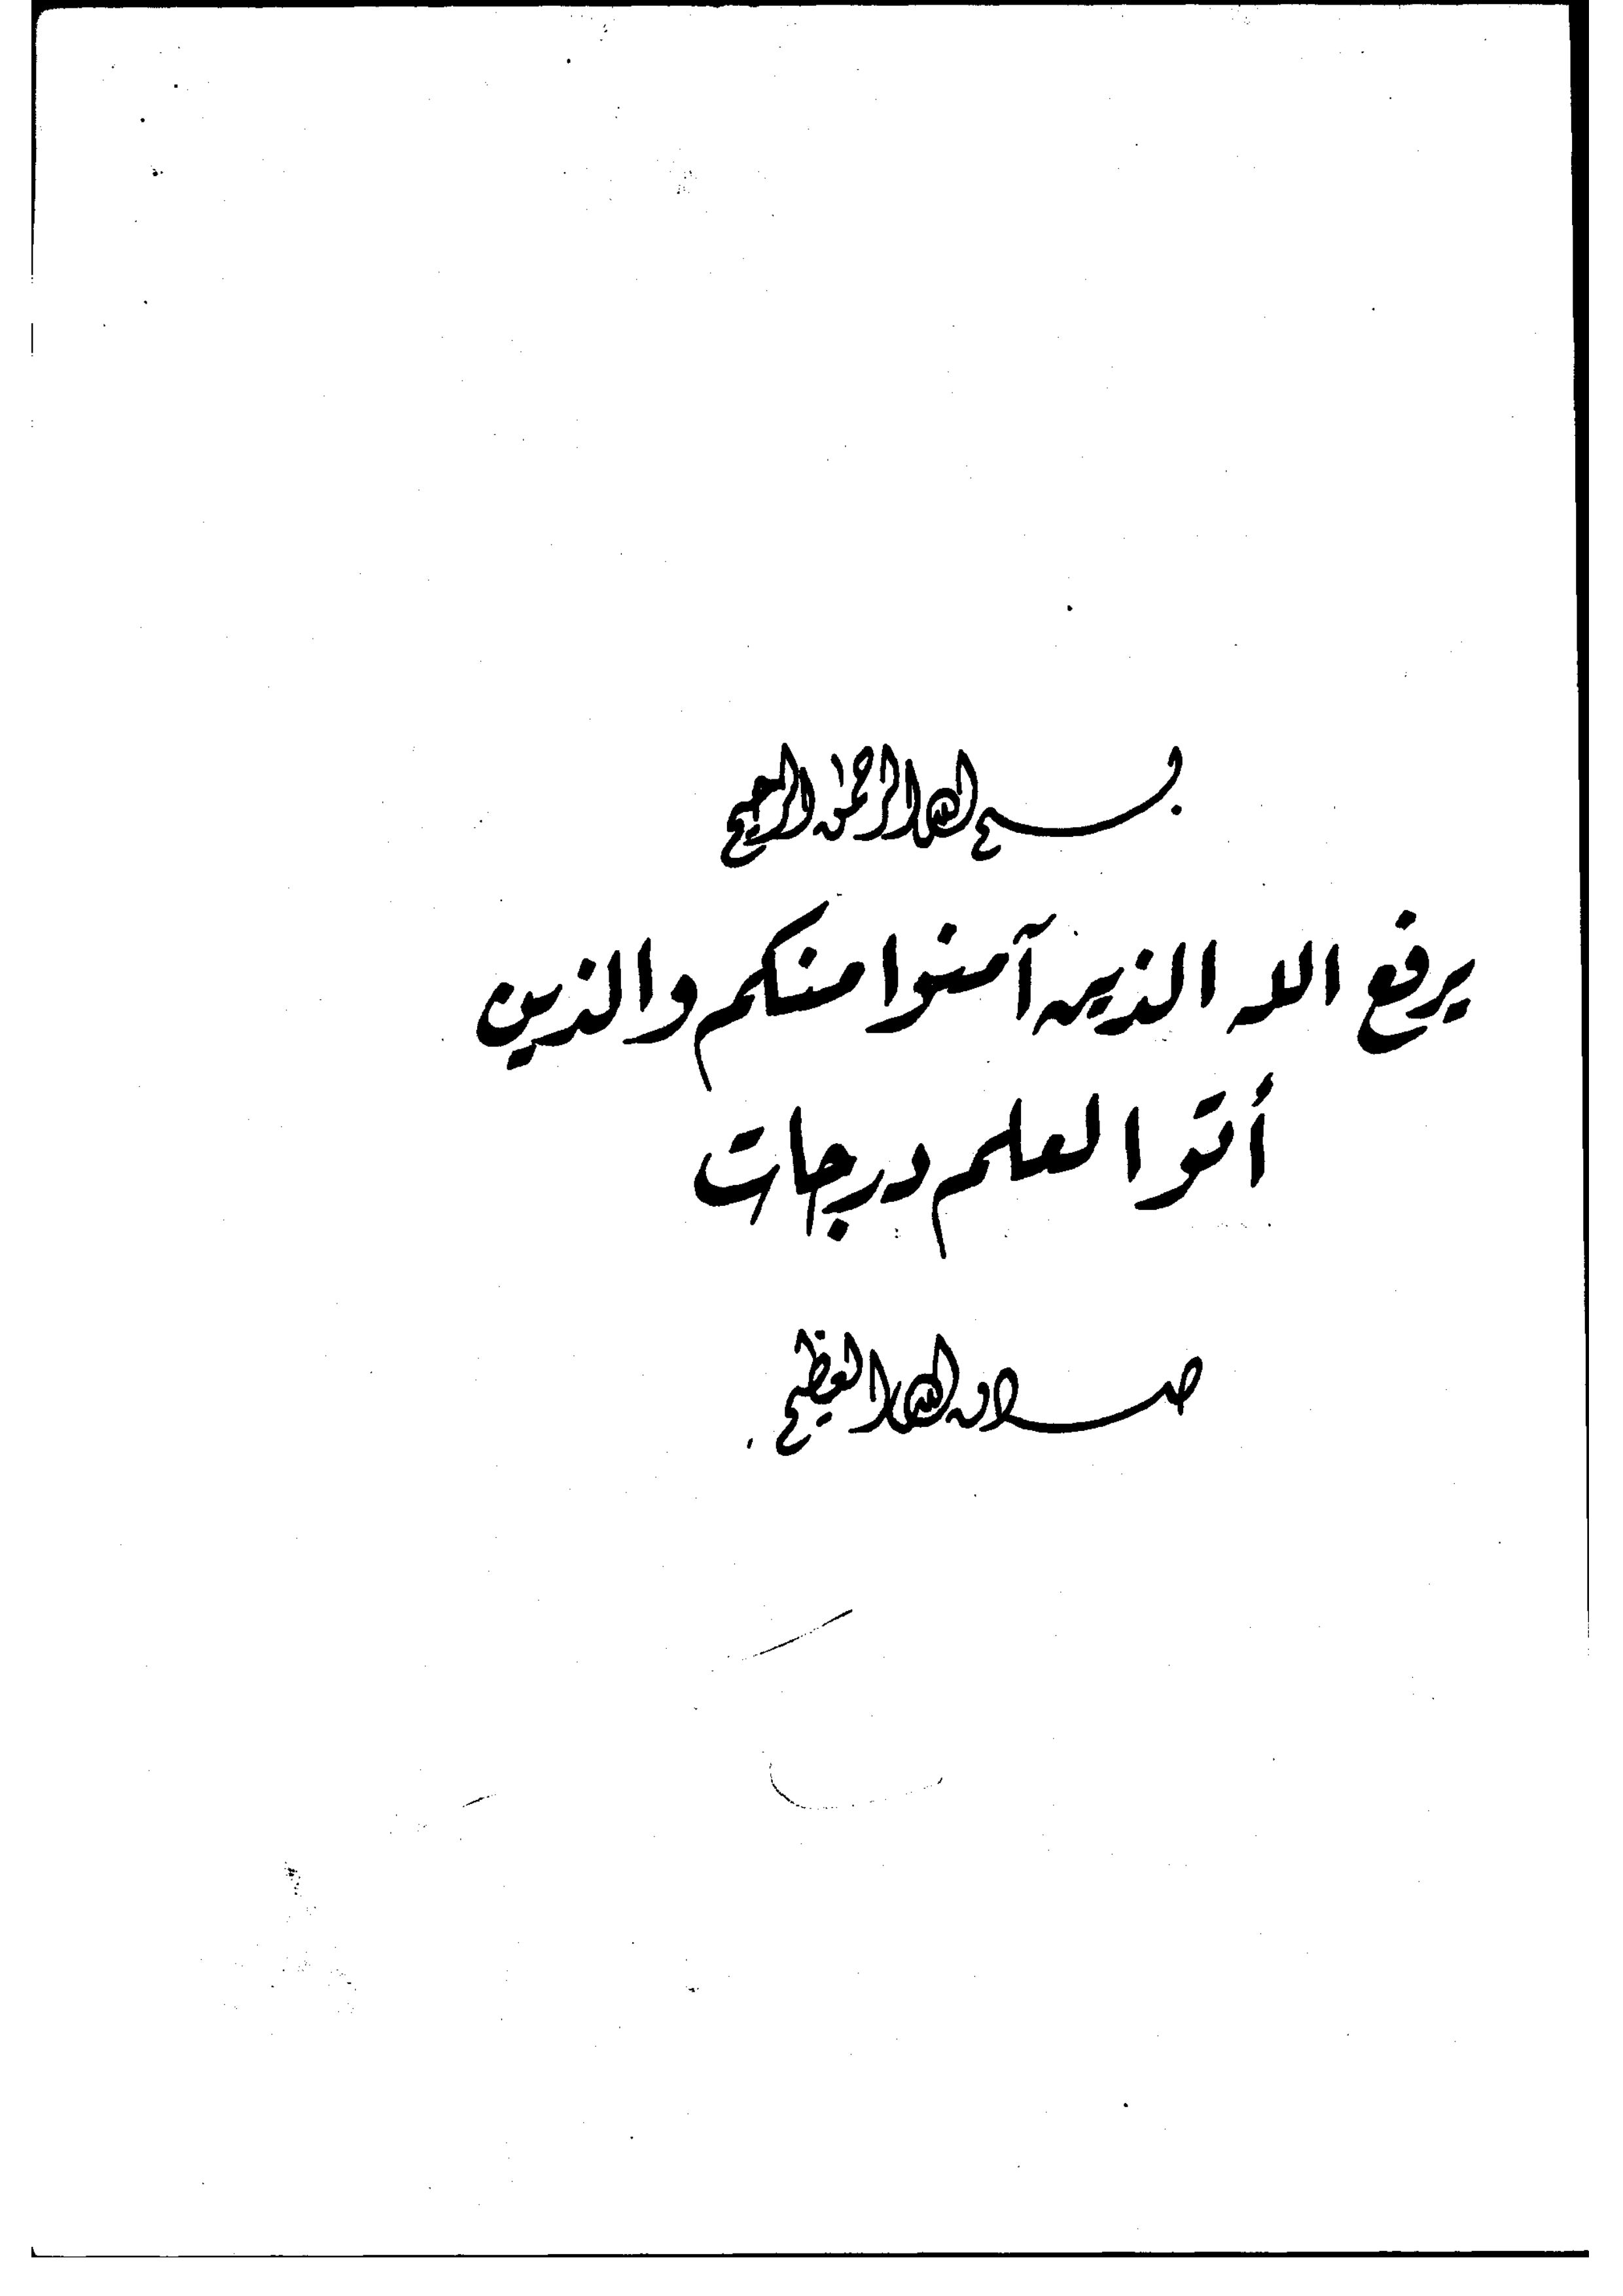 بسم الله الرحمن الرحيم
يرفع الله الذين آمنوا منكم والذين
أتوا العلم درجات
صدق الله العظيم